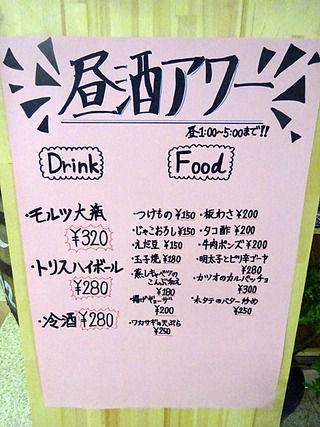 昼酒アワー
昼1:00~5:00まで!!
Drink
Food
・モルツ大瓶
¥320
・トリスハイボール
¥280
・冷酒 ¥280
・つけもの ¥150
・じゃこおろし ¥150
・えだ豆 ¥150
・玉子焼 ¥180
・蒸しキャベツの
こんぶ和え
¥180
・揚げギョーザ
¥200
・ワカサギの天ぷら
¥250
・板わさ ¥200
・タコ酢 ¥200
・牛肉ポンズ ¥200
・明太子とピリ辛ゴーヤ
¥280
・カツオのカルパッチョ
¥300
・ホタテのバター炒め
¥350